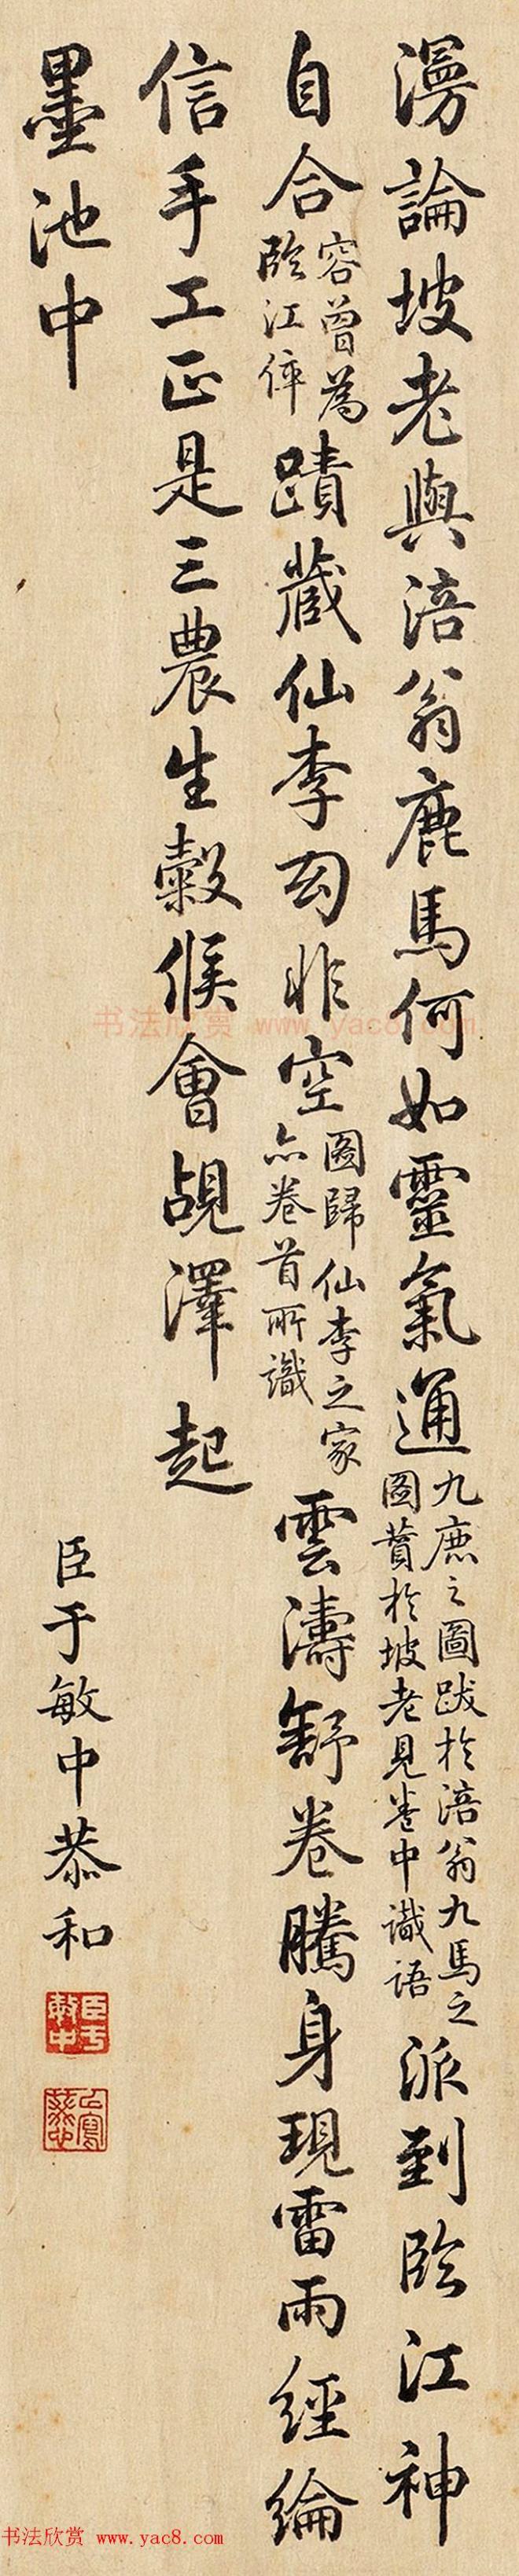 漫論坡老與涪翁鹿馬何如靈氣通九鹿之圖跋於涪翁九馬之圖賛於坡老見卷中識語派到臨江神
自合容曾為臨江倅蹟藏仙李匃非空圖歸仙李之家亦卷首所識雲濤舒卷騰身現雷雨經綸
信手工正是三農生穀候會覘澤起
墨池中
臣于敏中恭和
臣于敏中
书法欣赏 www.yac8.com
书法欣赏 www.yac8.com